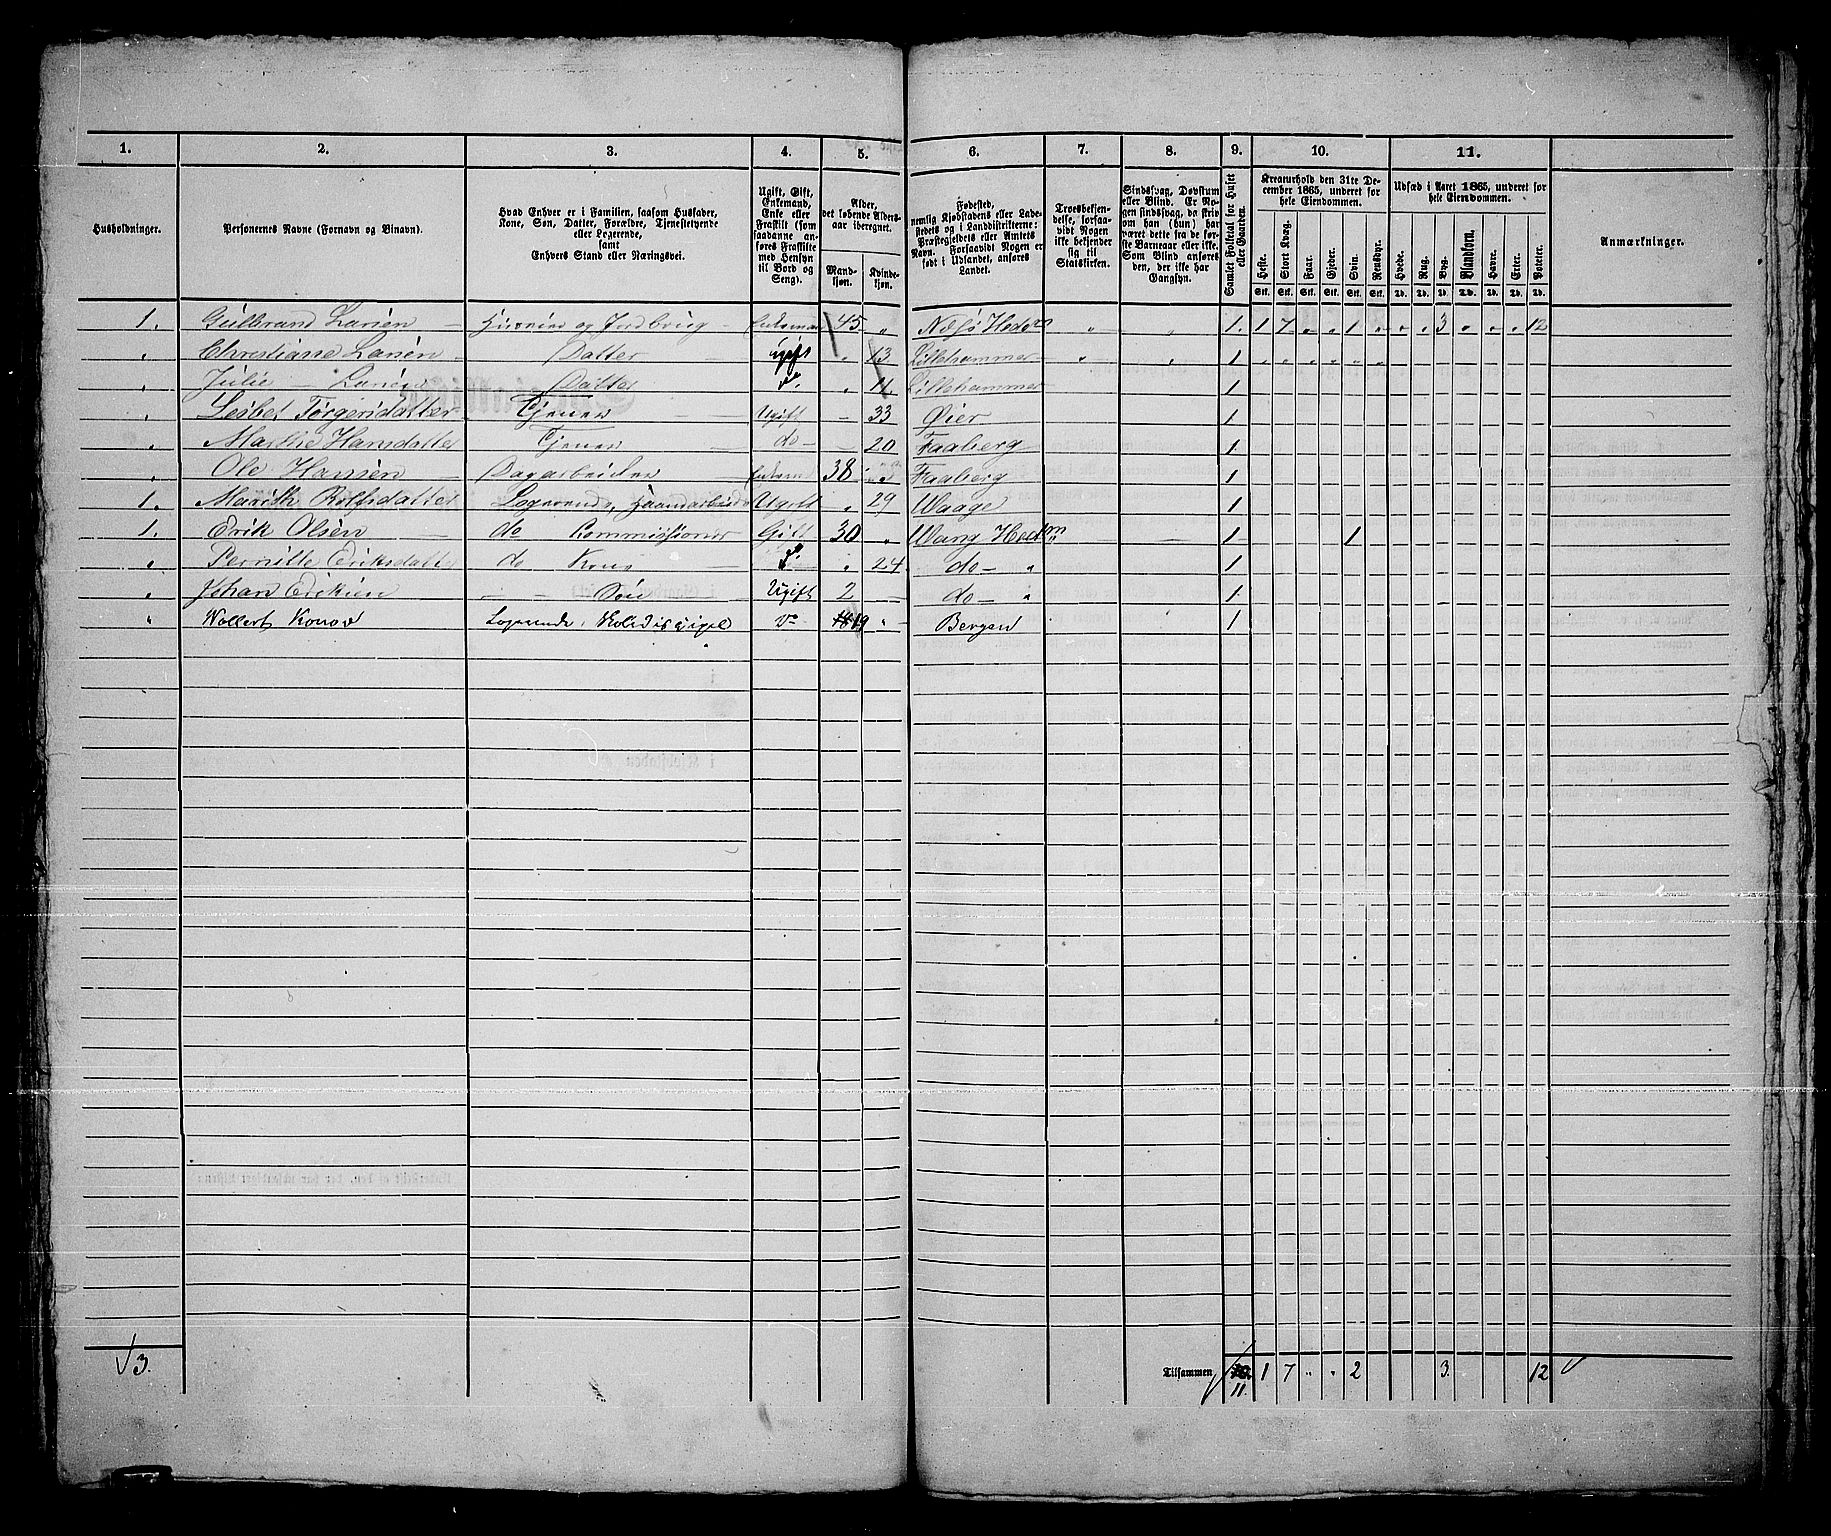 1. 2. 3. 4. 5. 6. 7. 8. 9. 10. 11.
Husholdninger.
Personernes Navne (Fornavn og Binavn).
Hvad Enhver er i Familien, saasom Husfader,
Kone, Søn, Datter, Forældre, Tjenestetyende
eller Logerende,
samt
Enhvers Stand eller Næringsvei.
Ugift, Gift,
Enkemand,
Enke eller
Fraskilt (som
saadanne an-
føres Fraskilte
med Hensyn
til Bord og
Seng).
Alder,
det løbende Alders-
aar iberegnet.
Mand-
kjøn.
Kvinde-
kjøn.
Fødested,
nemlig Kjøbstadens eller Lade-
stedets og i Landdistrikterne:
Præstegjeldets eller Amtets
Navn. Forsaavidt Nogen er
født i Udlandet, anføres
Landet.
Troesbekjen-
delse, forsaa-
vidt Nogen
ikke bekjender
sig til
Statskirken.
Sindssvag, Døvstum
eller Blind. Er No-
gen sindssvag, da skriv
om han (hun) har
været dette fra de før-
ste Barneaar eller ikke.
Som Blind anføres
den, der ikke har
Gangsyn.
Samlet Folketal for Huset
eller Gaarden.
Kreaturhold den 31te De-
cember 1865, underet for
hele Eiendommen.
Heste. Stort Kvæg. Faar. Gjeder. Svin. Rensdyr.
Stk. Stk. Stk. Stk. Stk. Stk.
Udsæd i Aaret 1865, underet for
hele Eiendommen.
Hvede. Rug. Byg. Blandkorn. Havre. Erter. Poteter.
Td. Td. Td. Td. Td. Td. Td.
Anmærkninger.
1. Gulbrand Larsen og Jordbrug Enkeman 45 " Næs Hedem " " 1. 1 7 " " 1 " " " 3 " " " 12
" Christiane Larsen Datter Ugift " 13 Lillehammer " " 1
" Julie Larsen Datter do " 11 Lillehammer 1
" Torgersdatter Tjener Ugift - 33 Øier 1
" Marthe Hansdatter Tjener do - 20 Faaberg 1
" Ole Hansen Dagarbeider Enkem 38 " Faaberg 1
1. Marith Rolfsdatter Logerende, Haandarbeide Ugift " 29 Waage 1
1. Erik Olsen do Kommissionær Gift 30 " Wang Hedm 1 1
" Pernille Eriksdatter do Kone " 24 do " 1
" Johan Eriksen Søn Ugift 2 do " 1
" Wollert Konow Logerende, Skoledisipel do 19 " Bergen 1
3.
Tilsammen 11. 1 7 " " 2 3. 12